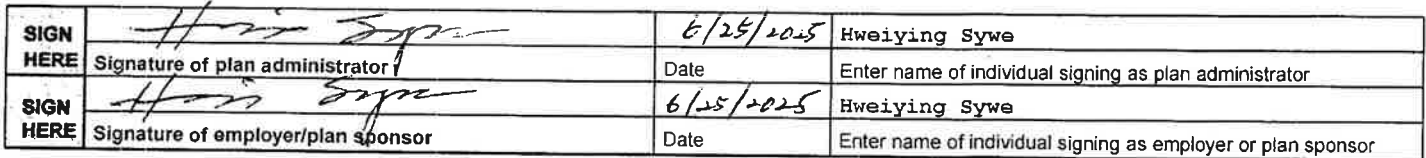 SIGN HERE
6/25/2025 Hweiying Sywe
Signature of plan administrator Date Enter name of individual signing as plan administrator
SIGN HERE
6/25/2025 Hweiying Sywe
Signature of employer/plan sponsor Date Enter name of individual signing as employer or plan sponsor